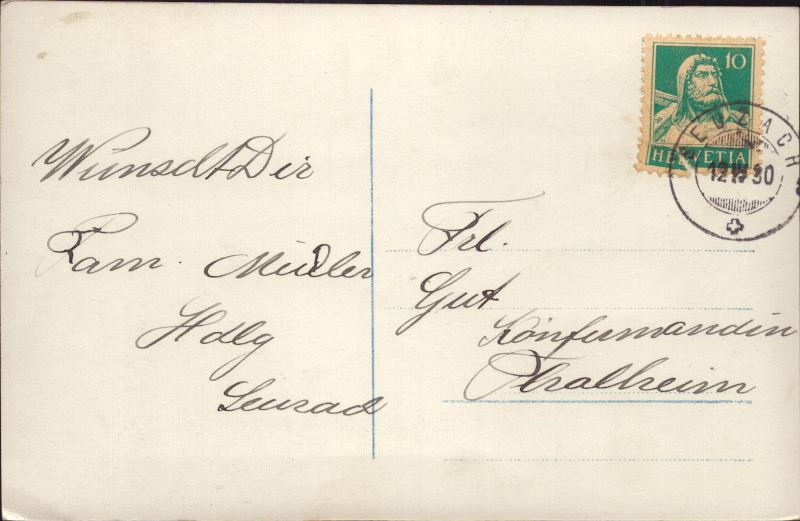 Wünscht Dir
Fam. Müller
Hdlg
Seuzach
Frl.
Gut
Konfirmandin
Thalheim
10
HELVETIA
SEUZACH
12 IV 30